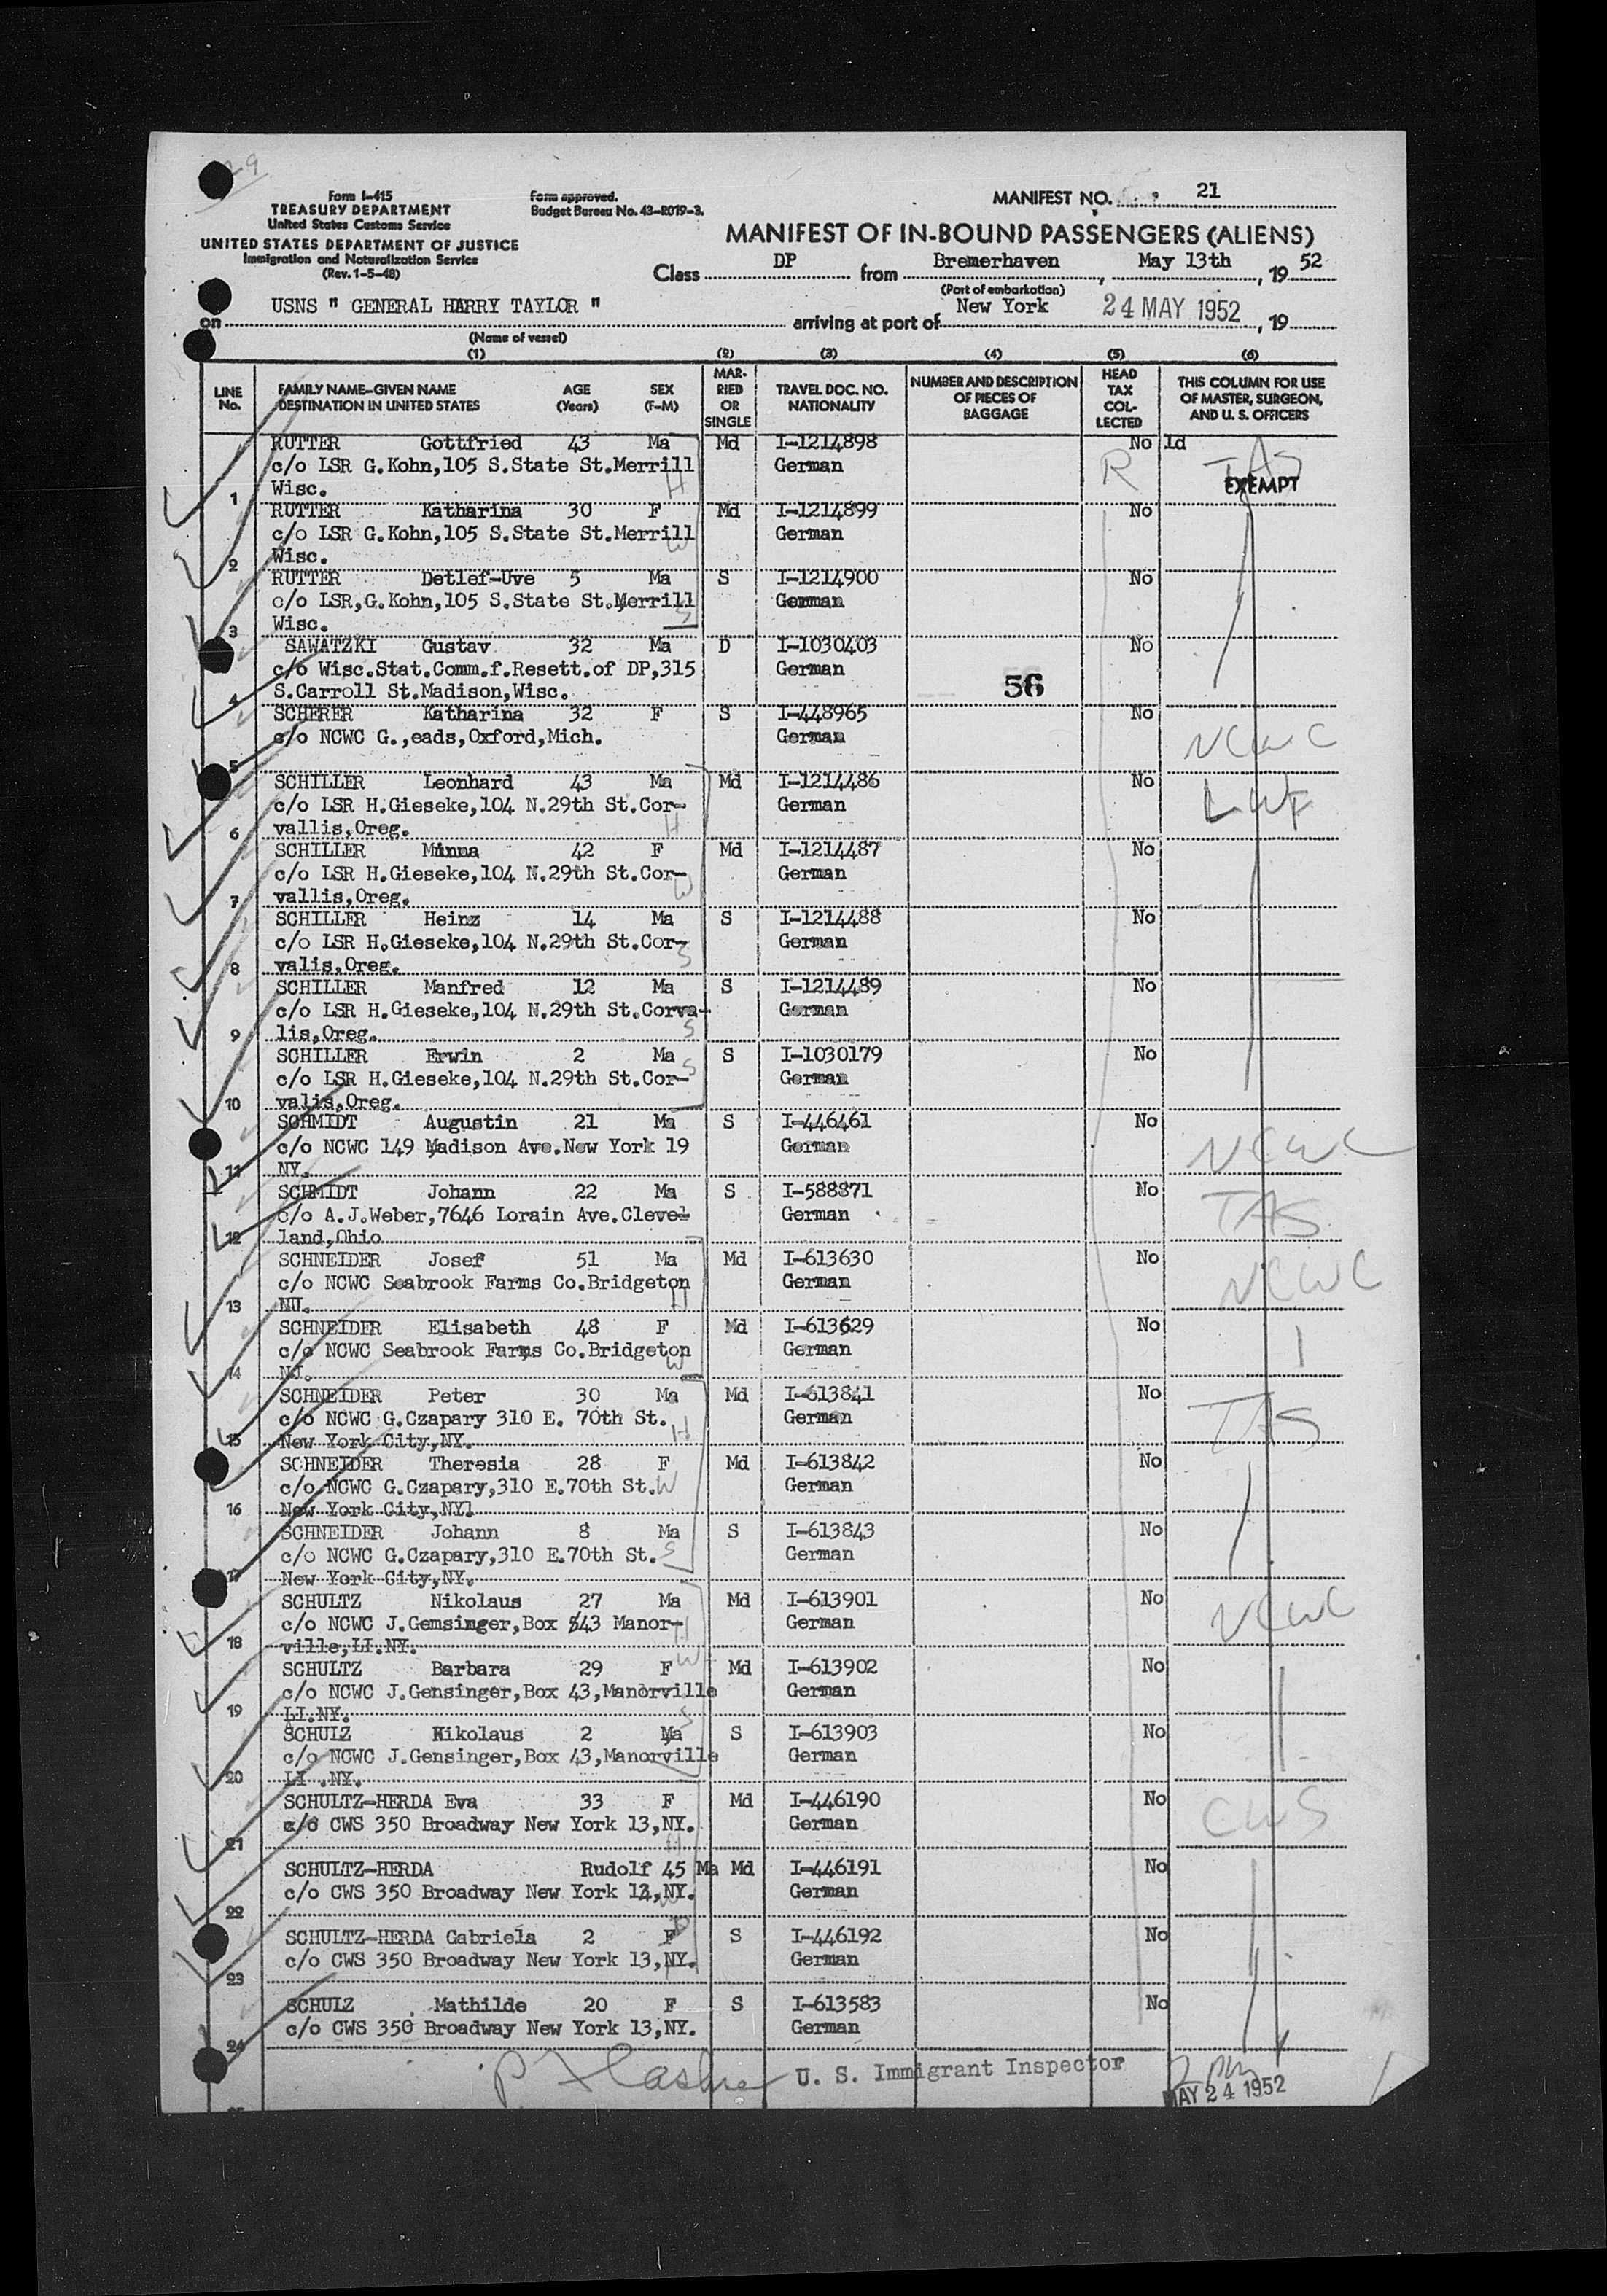 Form I-415
TREASURY DEPARTMENT
United States Customs Service
UNITED STATES DEPARTMENT OF JUSTICE
Immigration and Naturalization Service
(Rev. 1-5-48)
Form approved.
Budget Bureau No. 43-R019-3.
MANIFEST NO. 21
MANIFEST OF IN-BOUND PASSENGERS (ALIENS)
Class DP from Bremerhaven, May 13th, 19 52
(Port of embarkation)
on USNS " GENERAL HARRY TAYLOR " arriving at port of New York 24 MAY 1952, 19
(Name of vessel)
(1) (2) (3) (4) (5) (6)
LINE No. FAMILY NAME-GIVEN NAME DESTINATION IN UNITED STATES AGE (Years) SEX (F-M) MARRIED OR SINGLE TRAVEL DOC. NO. NATIONALITY NUMBER AND DESCRIPTION OF PIECES OF BAGGAGE HEAD TAX COLLECTED THIS COLUMN FOR USE OF MASTER, SURGEON, AND U. S. OFFICERS
RUTTER Gottfried 43 Ma Md I-1214898 No ld
c/o LSR G.Kohn,105 S.State St.Merrill German R TAS
1 Wisc. H EXEMPT
RUTTER Katharina 30 F Md I-1214899 No
c/o LSR G.Kohn,105 S.State St.Merrill German
2 Wisc. W
RUTTER Detlef-Uve 5 Ma S I-1214900 No
c/o LSR,G.Kohn,105 S.State St.Merrill German
3 Wisc. S
SAWATZKI Gustav 32 Ma D I-1030403 No
c/o Wisc.Stat.Comm.f.Resett.of DP,315 German
4 S.Carroll St.Madison,Wisc. 56
SCHERER Katharina 32 F S I-448965 No
c/o NCWC G.,eads,Oxford,Mich. German NCWC
5
SCHILLER Leonhard 43 Ma Md I-1214486 No
c/o LSR H.Gieseke,104 N.29th St.Cor- German LWF
6 vallis,Oreg. H
SCHILLER Minna 42 F Md I-1214487 No
c/o LSR H.Gieseke,104 N.29th St.Cor- German
7 vallis,Oreg. W
SCHILLER Heinz 14 Ma S I-1214488 No
c/o LSR H.Gieseke,104 N.29th St.Cor- German
8 valis,Oreg. S
SCHILLER Manfred 12 Ma S I-1214489 No
c/o LSR H.Gieseke,104 N.29th St.Corva- German
9 lis,Oreg. S
SCHILLER Erwin 2 Ma S I-1030179 No
c/o LSR H.Gieseke,104 N.29th St.Cor- S German
10 valis,Oreg.
SCHMIDT Augustin 21 Ma S I-446461 No
c/o NCWC 149 Madison Ave.New York 19 German NCWC
11 NY.
SCHMIDT Johann 22 Ma S I-588871 No
c/o A.J.Weber,7646 Lorain Ave.Clevel- German TAS
12 land,Ohio
SCHNEIDER Josef 51 Ma Md I-613630 No
c/o NCWC Seabrook Farms Co.Bridgeton German NCWC
13 NU. H
SCHNEIDER Elisabeth 48 F Md I-613629 No
c/o NCWC Seabrook Farms Co.Bridgeton German
14 NJ. W
SCHNEIDER Peter 30 Ma Md I-613841 No
c/o NCWC G.Czapary 310 E. 70th St. German TAS
15 New York City,NY. H
SCHNEIDER Theresia 28 F Md I-613842 No
c/o NCWC G.Czapary,310 E.70th St. W German
16 New York City,NY.
SCHNEIDER Johann 8 Ma S I-613843 No
c/o NCWC G.Czapary,310 E.70th St. S German
17 New York City,NY.
SCHULTZ Nikolaus 27 Ma Md I-613901 No
c/o NCWC J.Gemsinger,Box 543 Manor- H German NCWC
18 ville,LI.NY.
SCHULTZ Barbara 29 F W Md I-613902 No
c/o NCWC J.Gensinger,Box 43,Manorville German
19 LI.NY. S
SCHULZ Nikolaus 2 Ma S I-613903 No
c/o NCWC J.Gensinger,Box 43,Manorville German
20 LI .NY.
SCHULTZ-HERDA Eva 33 F Md I-446190 No
c/o CWS 350 Broadway New York 13,NY. German CWS
21 H
SCHULTZ-HERDA Rudolf 45 Ma Md I-446191 No
c/o CWS 350 Broadway New York 13,NY. German
22
SCHULTZ-HERDA Gabriela 2 F S I-446192 No
c/o CWS 350 Broadway New York 13,NY. German
23
SCHULZ Mathilde 20 F S I-613583 No
c/o CWS 350 Broadway New York 13,NY. German
24
U. S. Immigrant Inspector
MAY 24 1952